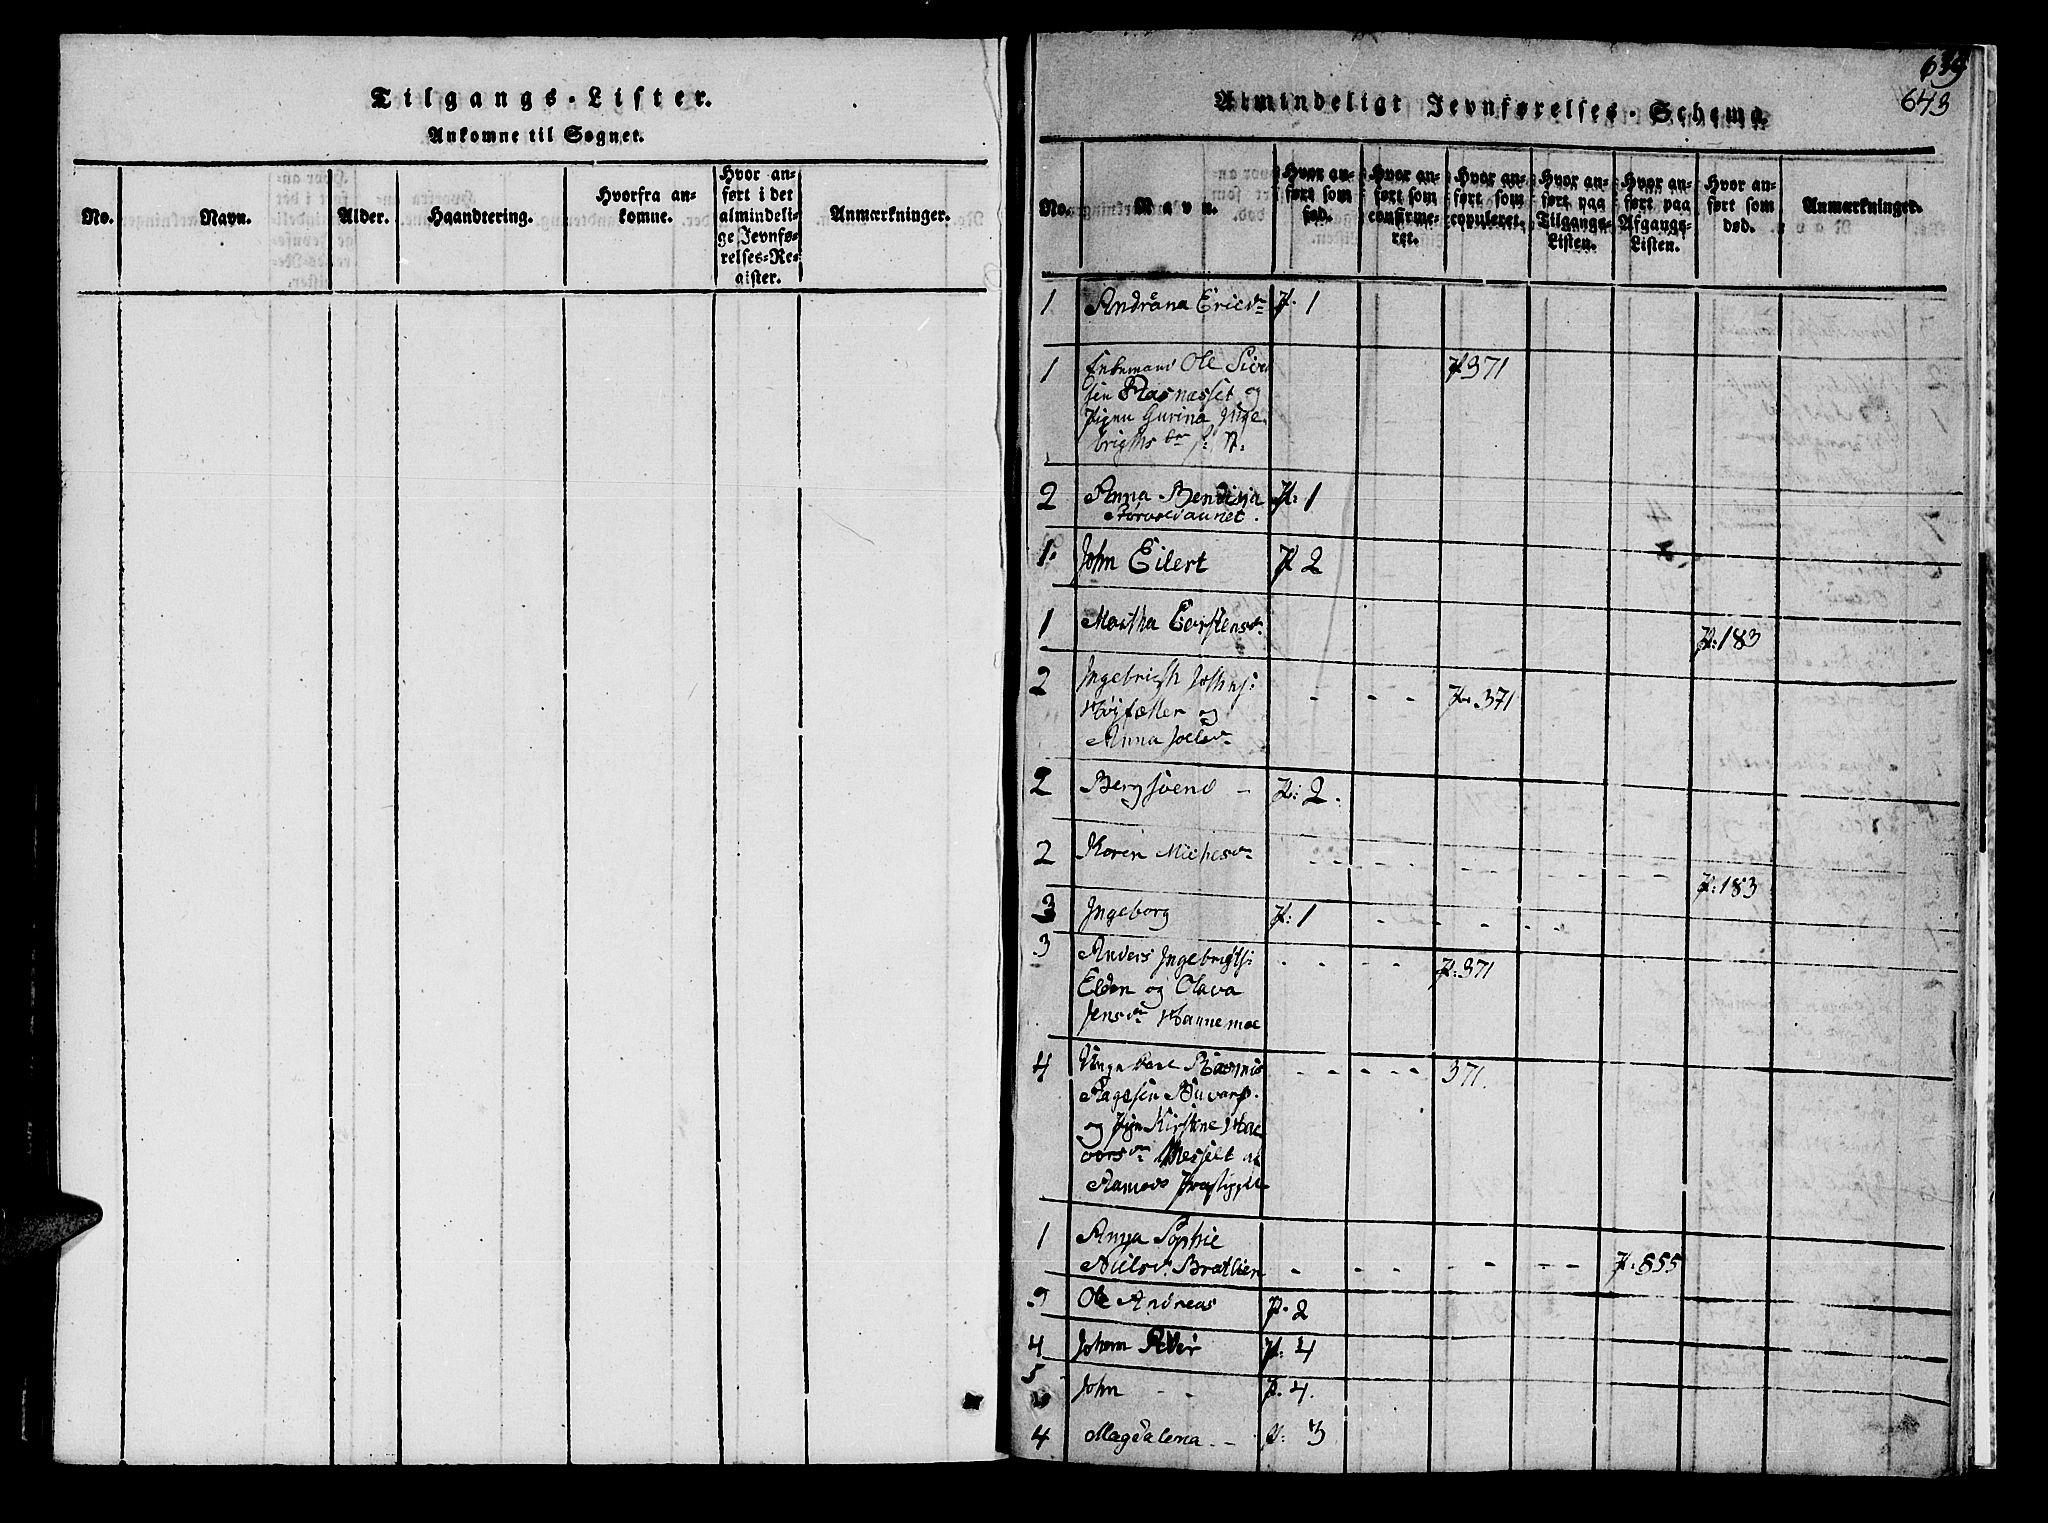 Tilgangs-Lister.
Ankomne til Sognet.
No.
Navn.
Alder.
Haandtering.
Hvorfra an-
komne.
Hvor an-
ført i det
almindeli-
ge Jevnfø-
relses-Re-
gister.
Anmærkninger.
643
Almindeligt Jevnførelses-Schema.
No.
Navn.
Hvor an-
ført som
fød.
Hvor an-
ført som
confirme-
ret.
Hvor an-
ført som
copuleret.
Hvor an-
ført paa
Tilgangs-
Listen.
Hvor an-
ført paa
Afgangs-
Listen.
Hvor an-
ført som
død.
Anmærkninger.
1 Andrana Ericsdr P. 1
1 Enkemand Ole Siver P 371
sen Rasnæsset og
Pigen Gurina Inge
brigtsdr
2 Anna Bendicta P: 1
Størvoldaunet.
1. John Eilert P 2
1 Martha Torstensdr. P: 183
2 Ingebrigt Johns: - - - P. 371
og
Anna Joelsdr
2 Bergsvend - P: 2.
2 Karen Michelsdr P: 183
3 Ingeborg P: 1
3 Anders Ingebrigts: - - - - P: 371
Elden og Olava
Jensdr Hannemoe
4 Unge Karl Rasmus - - - - - 371.
og Pigen Kirstine
Messelt
1 Anna Sophie
Nielsdr. Bratlien - - - - - - P. 855
3 Ole Andreas P. 2
4 Johan P. 4
5 John - - P. 4.
4 Magdalena. - P. 3